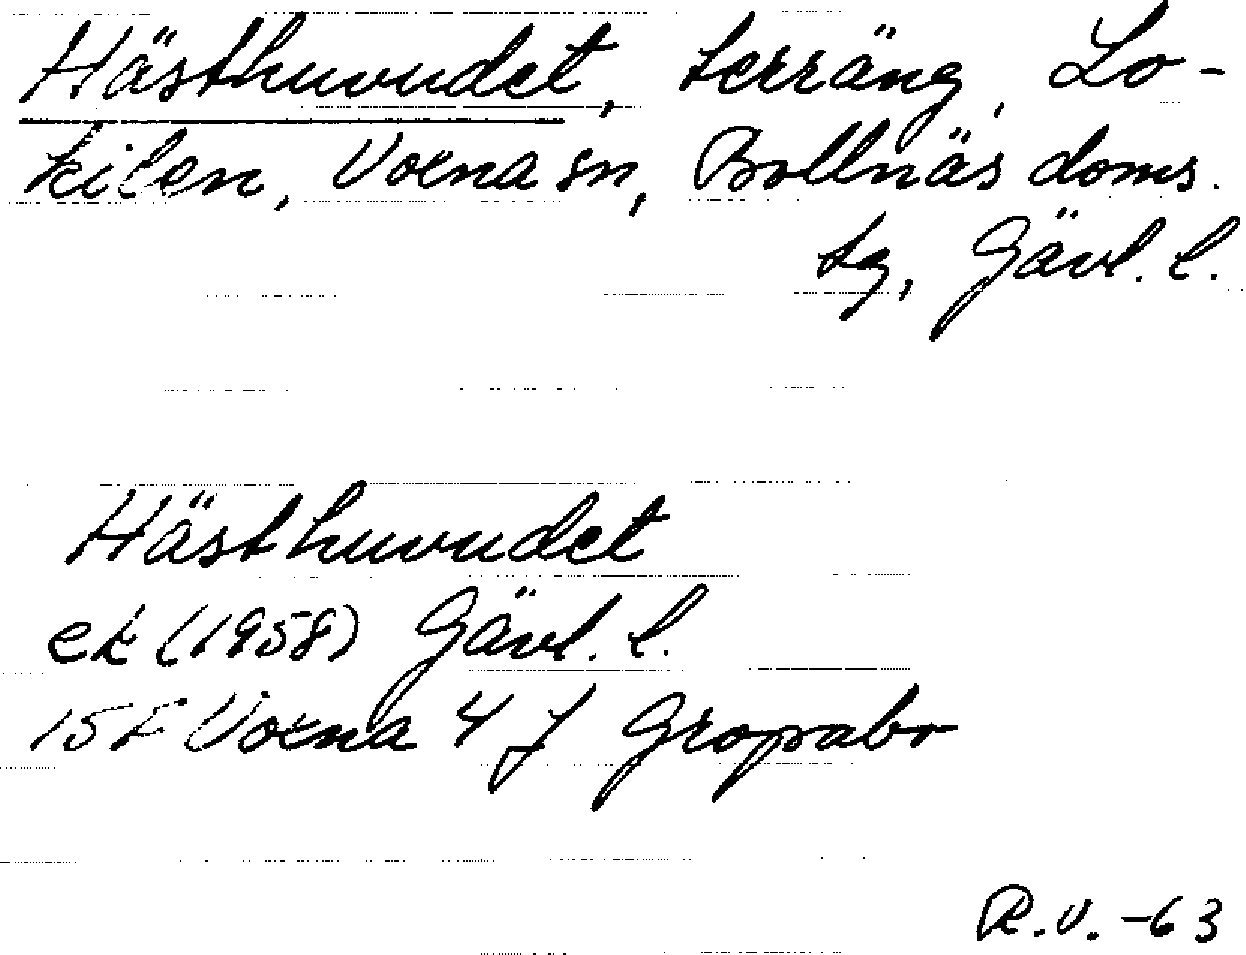 Hästhuvudet, terräng, Lo-
kilen, Voxna sn, Bollnäs doms.
tg, Gävl. l.
Hästhuvudet
ek (1958) Gävl. l.
15F Voxna 4 j Gropabo
R.V. -63